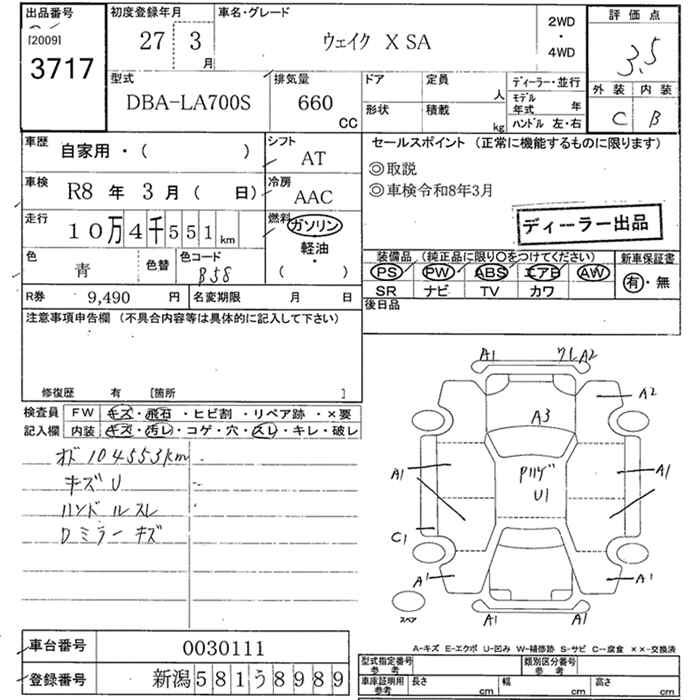 出品番号 [2009] 3717
初度登録年月 27 3 月
車名・グレード ウェイク X SA
2WD ・ 4WD
評価点 3.5
外装 C 内装 B
型式 DBA-LA700S
排気量 660 CC
ドア 定員 人
形状 積載 kg
ディーラー・並行
モデル年式 年
ハンドル 左・右
車歴 自家用・( )
シフト AT
車検 R8 年 3 月 ( 日)
冷房 AAC
走行 10万4千551km
燃料 ガソリン 軽油 ・ ( )
色 青 色替 色コード B58
R券 9,490 円 名変期限 月 日
セールスポイント (正常に機能するものに限ります)
◎取説
◎車検令和8年3月
ディーラー出品
装備品 (純正品に限り○をつけてください) 新車保証書
PS PW ABS エアB AW 有・無
SR ナビ TV カワ
後日品
注意事項申告欄 (不具合内容等は具体的に記入して下さい)
修復歴 有 [箇所 ]
検査員 FW キズ・飛石・ヒビ割・リペア跡・×要
記入欄 内装 キズ・汚レ・コゲ・穴・スレ・キレ・破レ
オド104553km
キズU
ハンドルスレ
Dミラーキズ
A1 ワレA2
A2
A3
A1 Pハゲ A1
U1
C1
A1 A1
スペア A1 A1
A-キズ E-エクボ U-凹み W-補修跡 S-サビ C-腐食 ××-交換済
車台番号 0030111
登録番号 新潟581う8989
型式指定番号 参考 類別区分番号 参考
車庫証明用 参考 長さ cm 幅 cm 高さ cm